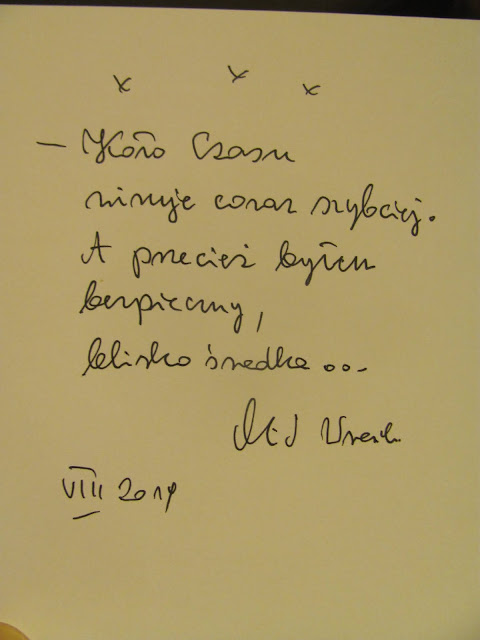 x x x
— Koło Czasu
wiruje coraz szybciej.
A przecież byłem
bezpieczny,
blisko środka...
VIII 2014